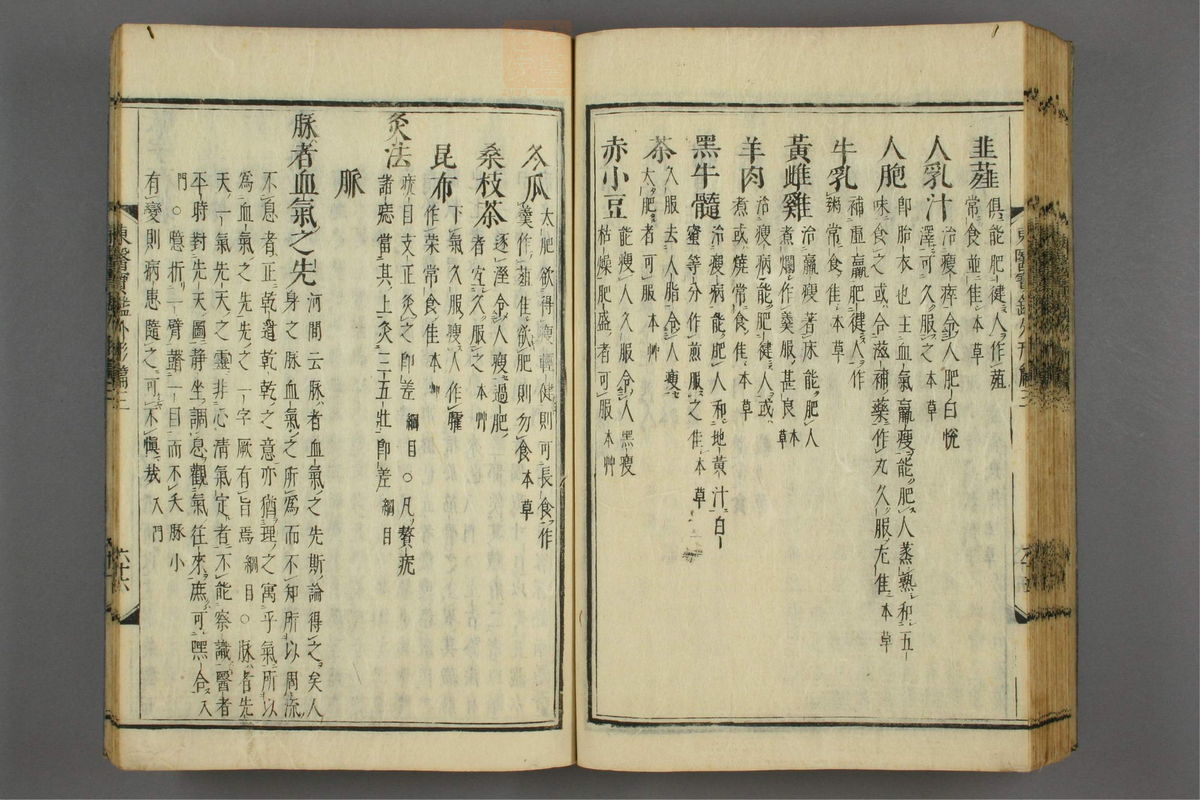 韭薤
俱能肥健人作葅
常食並佳本草
人乳汁
治瘦瘁令人肥白悅
澤可久服之本草
人胞
即胎衣也主血氣羸瘦能肥人蒸熟和五
味食之或合滋補藥作丸久服尤佳本草
牛乳
補虛羸肥健人作
粥常食佳本草
黃雌雞
治羸瘦着床能肥人
煮爛作羹服甚良本草
羊肉
治瘦病能肥健人或
煮或燒常食佳本草
黑牛髓
治瘦病能肥人和地黃汁白
蜜等分作煎服之佳本草
茶
久服去人脂令人瘦
太肥者可服本艸
赤小豆
能瘦人久服令人黑瘦
枯燥肥盛者可服本艸
冬瓜
太肥欲得瘦輕健則可長食作
羹作葅佳欲肥則勿食本草
桑枝茶
逐濕令人瘦過肥
者宜久服之本艸
昆布
下氣久服瘦人作臛
作菜常食佳本艸
灸法
疣目支正灸之即差綱目○凡贅疣
諸痣當其上灸三五壯即差綱目
脈
脉者血氣之先
河間云脉者血氣之先斯論得之矣人
身之脉血氣之所爲而不知所以周流
不息者正乾道乾乾之意亦猶理之寓乎氣所以
爲血氣之先先之一字厥有旨焉綱目○脉者先
天一氣先天之靈非心淸氣定者不能察識醫者
平時對先天圖靜坐調息觀氣往來庶可嘿合入
門○臆折一臂瞽一目而不夭脉小
有變則病患隨之可不愼哉入門
東醫寶鑑外形篇三
六十六